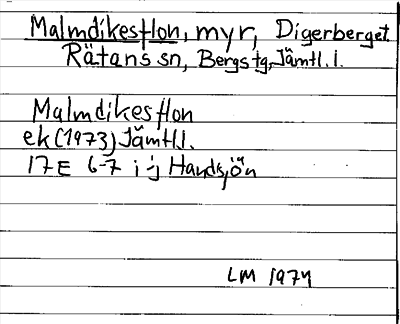 Malmdikesflon, myr, Digerberget
Rätans sn, Bergs tg, Jämtl. l.
Malmdikesflon
ek (1973) Jämtl.l.
17E 6-7 i-j Handsjön
LM 1974